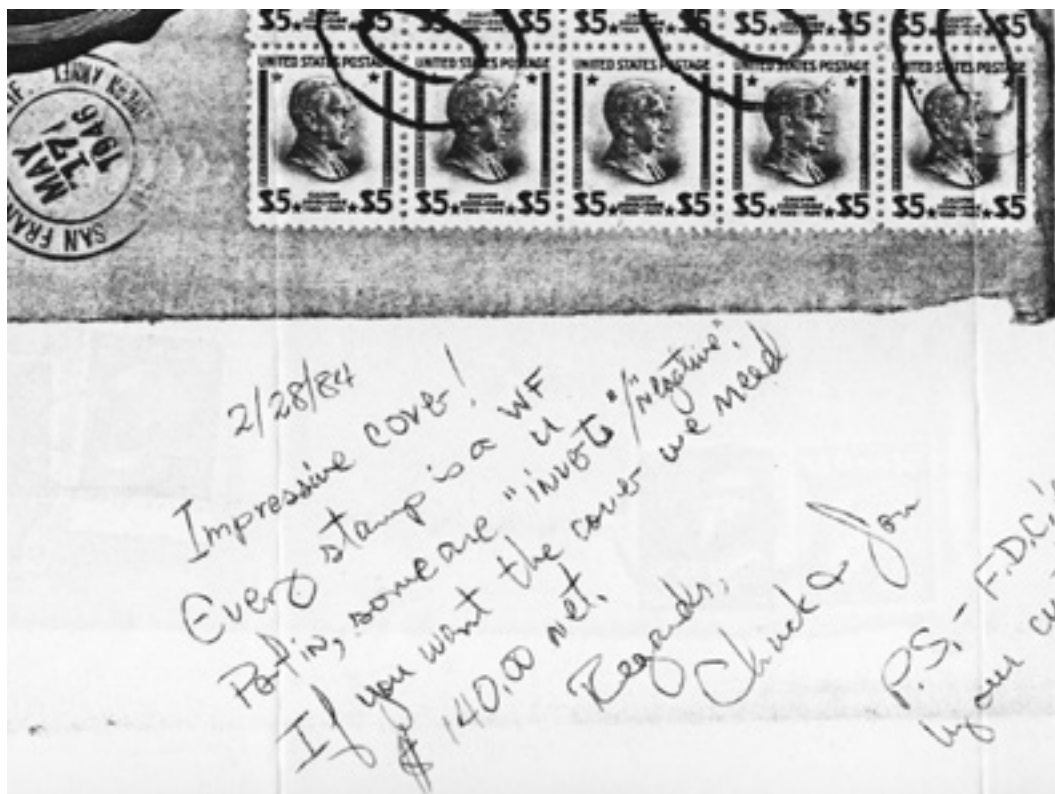 $5 $5 $5 $5 $5 $5 $5 $5 $5
UNITED STATES POSTAGE UNITED STATES POSTAGE UNITED STATES POSTAGE UNITED STATES POSTAGE UNITED STATES POSTAGE
$5 $5 $5 $5 $5 $5 $5 $5 $5 $5
MAY
17
1946
SAN FRAN
2/28/84
Impressive cover!
Every stamp is a WF
Perfin, some are "invote"/"negative".
If you want the cover we need
$ 140.00 net.
Regards,
Chuck & Jon
P.S. - F.D.C.'s